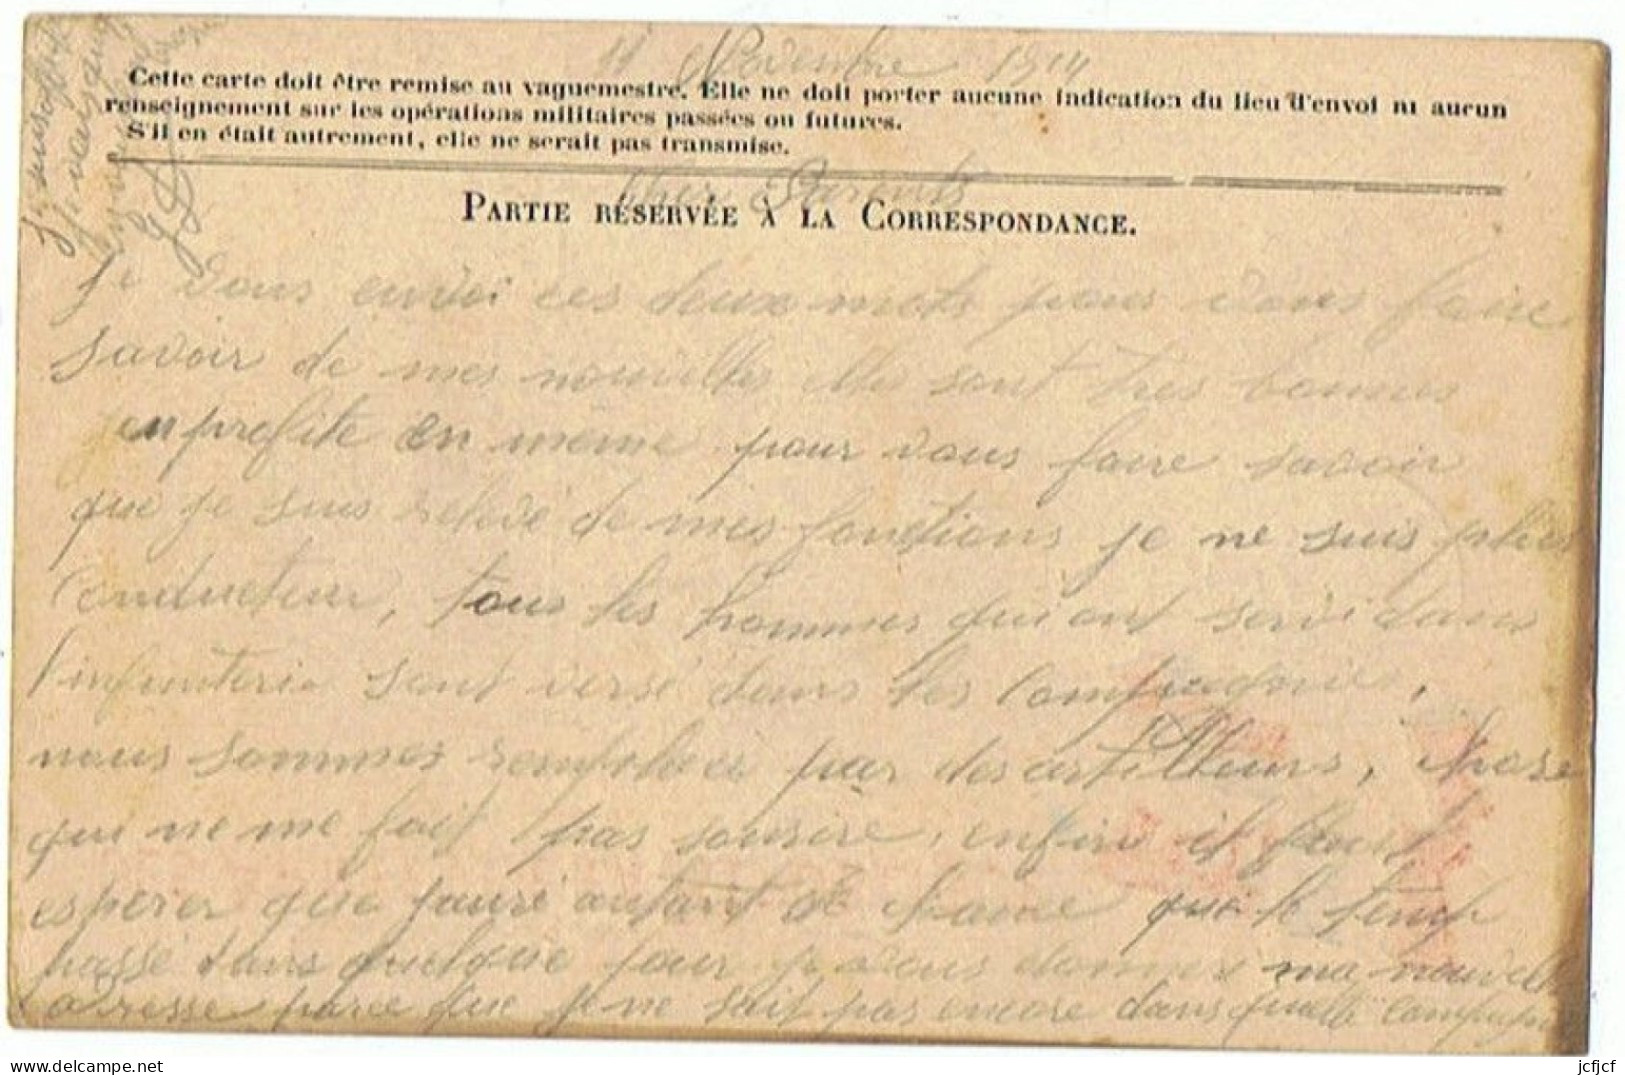 11 Novembre 1914
Cette carte doit être remise au vaguemestre. Elle ne doit porter aucune indication du lieu d'envoi ni aucun
renseignement sur les opérations militaires passées ou futures.
S'il en était autrement, elle ne serait pas transmise.
Cher Parents
PARTIE RÉSERVÉE À LA CORRESPONDANCE.
Je vous envoi ces deux mots pour vous faire
savoir de mes nouvelles elles sont très bonnes
j'en profite en même pour vous faire savoir
que je suis relevé de mes fonctions je ne suis plus
conducteur, tous les hommes qui ont servi dans
l'infanterie sont versé dans les Compagnies,
nous sommes remplacé par des artilleurs, chose
qui ne me fait pas sourire, enfin il faut
espérer que j'auré autant de chance que le temp
passé dans quelque jour je vous donnere ma nouvelle
adresse parce que je ne sait pas encore dans quelle compagni